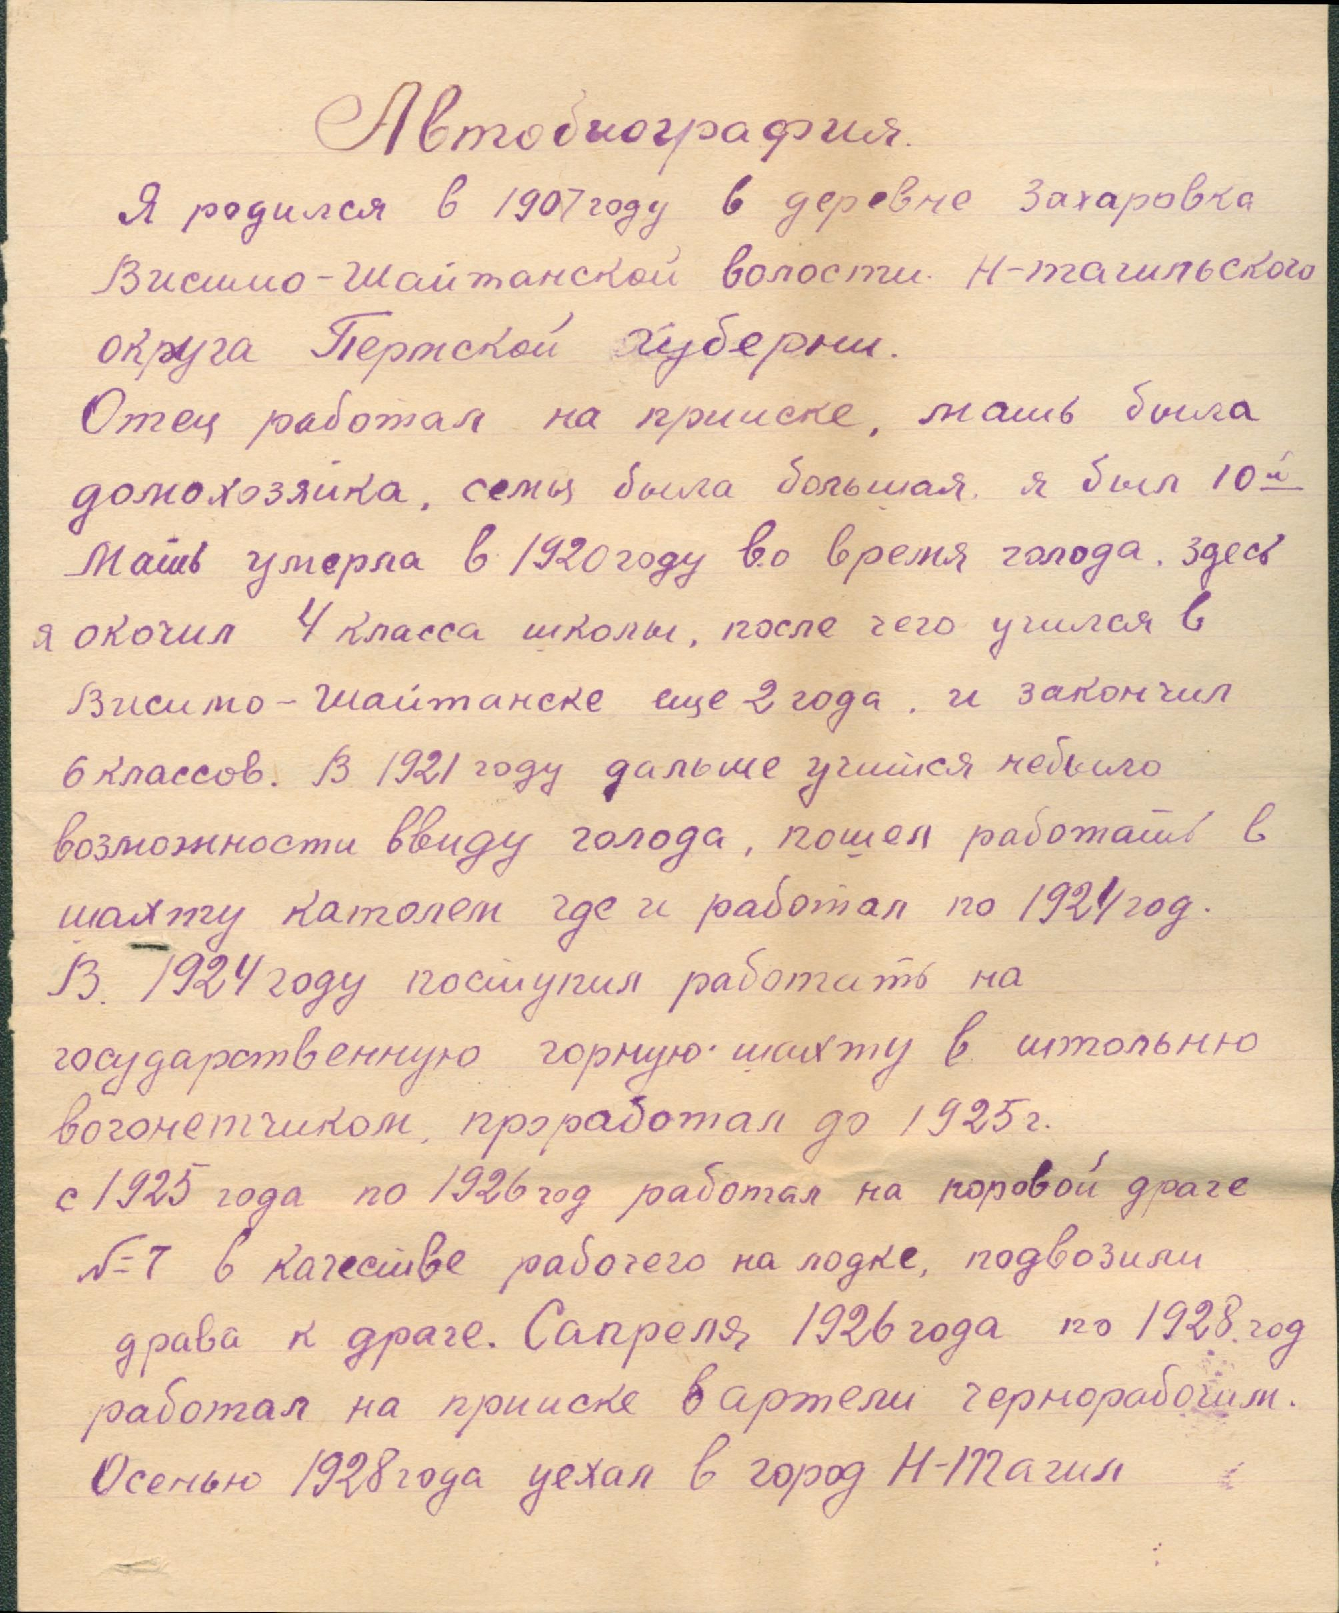 Автобиография.
Я родился в 1907 году в деревне Захаровка
Висимо-Шайтанской волости Н-тагильского
округа Пермской губернии.
Отец работал на прииске, мать была
домохозяйка, семья была большая. я был 10й
Мать умерла в 1920 году во время голода. Здесь
я окочил 4 класса школы, после чего учился в
Висимо-Шайтанске еще 2 года. и закончил
6 классов. В 1921 году дальше учится небыло
возможности ввиду голода, пошел работать в
шахту каталем где и работал по 1924 год.
В. 1924 году поступил работать на
государственную горную шахту в штольню
вогонетчиком, проработал до 1925 г.
с 1925 года по 1926 год работал на поровой драге
№ 7 в качестве рабочего на лодке, подвозили
драва к драге. Сапреля 1926 года по 1928. год
работал на прииске в артели чернорабочим.
Осенью 1928 года уехал в город Н-Тагил